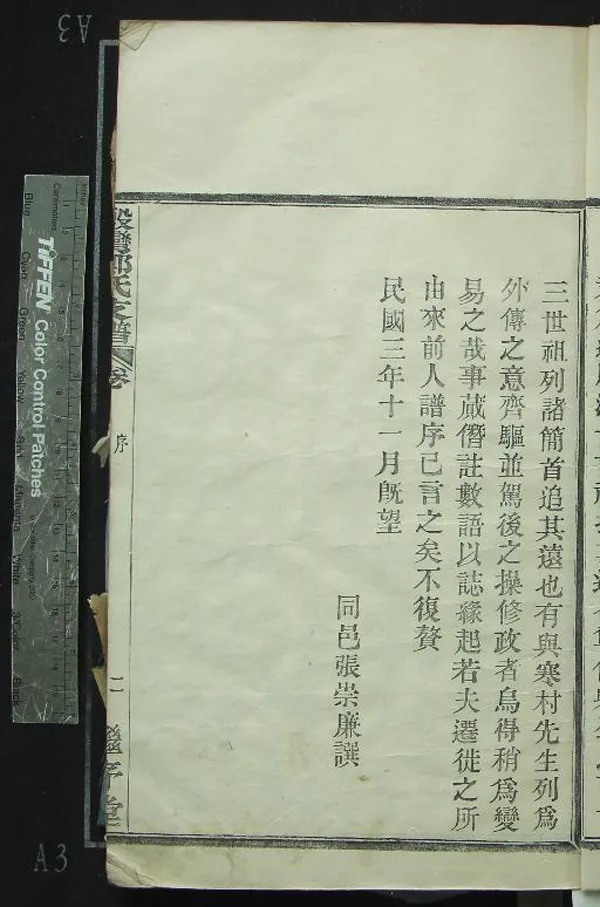 三世祖列諸簡首追其遠也有與寒村先生列爲
外傳之意齊驅並駕後之操修政者烏得稍爲變
易之哉事蕆僭註數語以誌緣起若夫遷徙之所
由來前人譜序已言之矣不復贅
民國三年十一月旣望
同邑張崇廉譔
氏支譜
卷
序
二
A3
A3
TIFFEN Color Control Patches
Centimetres
Blue
Cyan
Green
Yellow
Red
Magenta
White
3/Color
Black